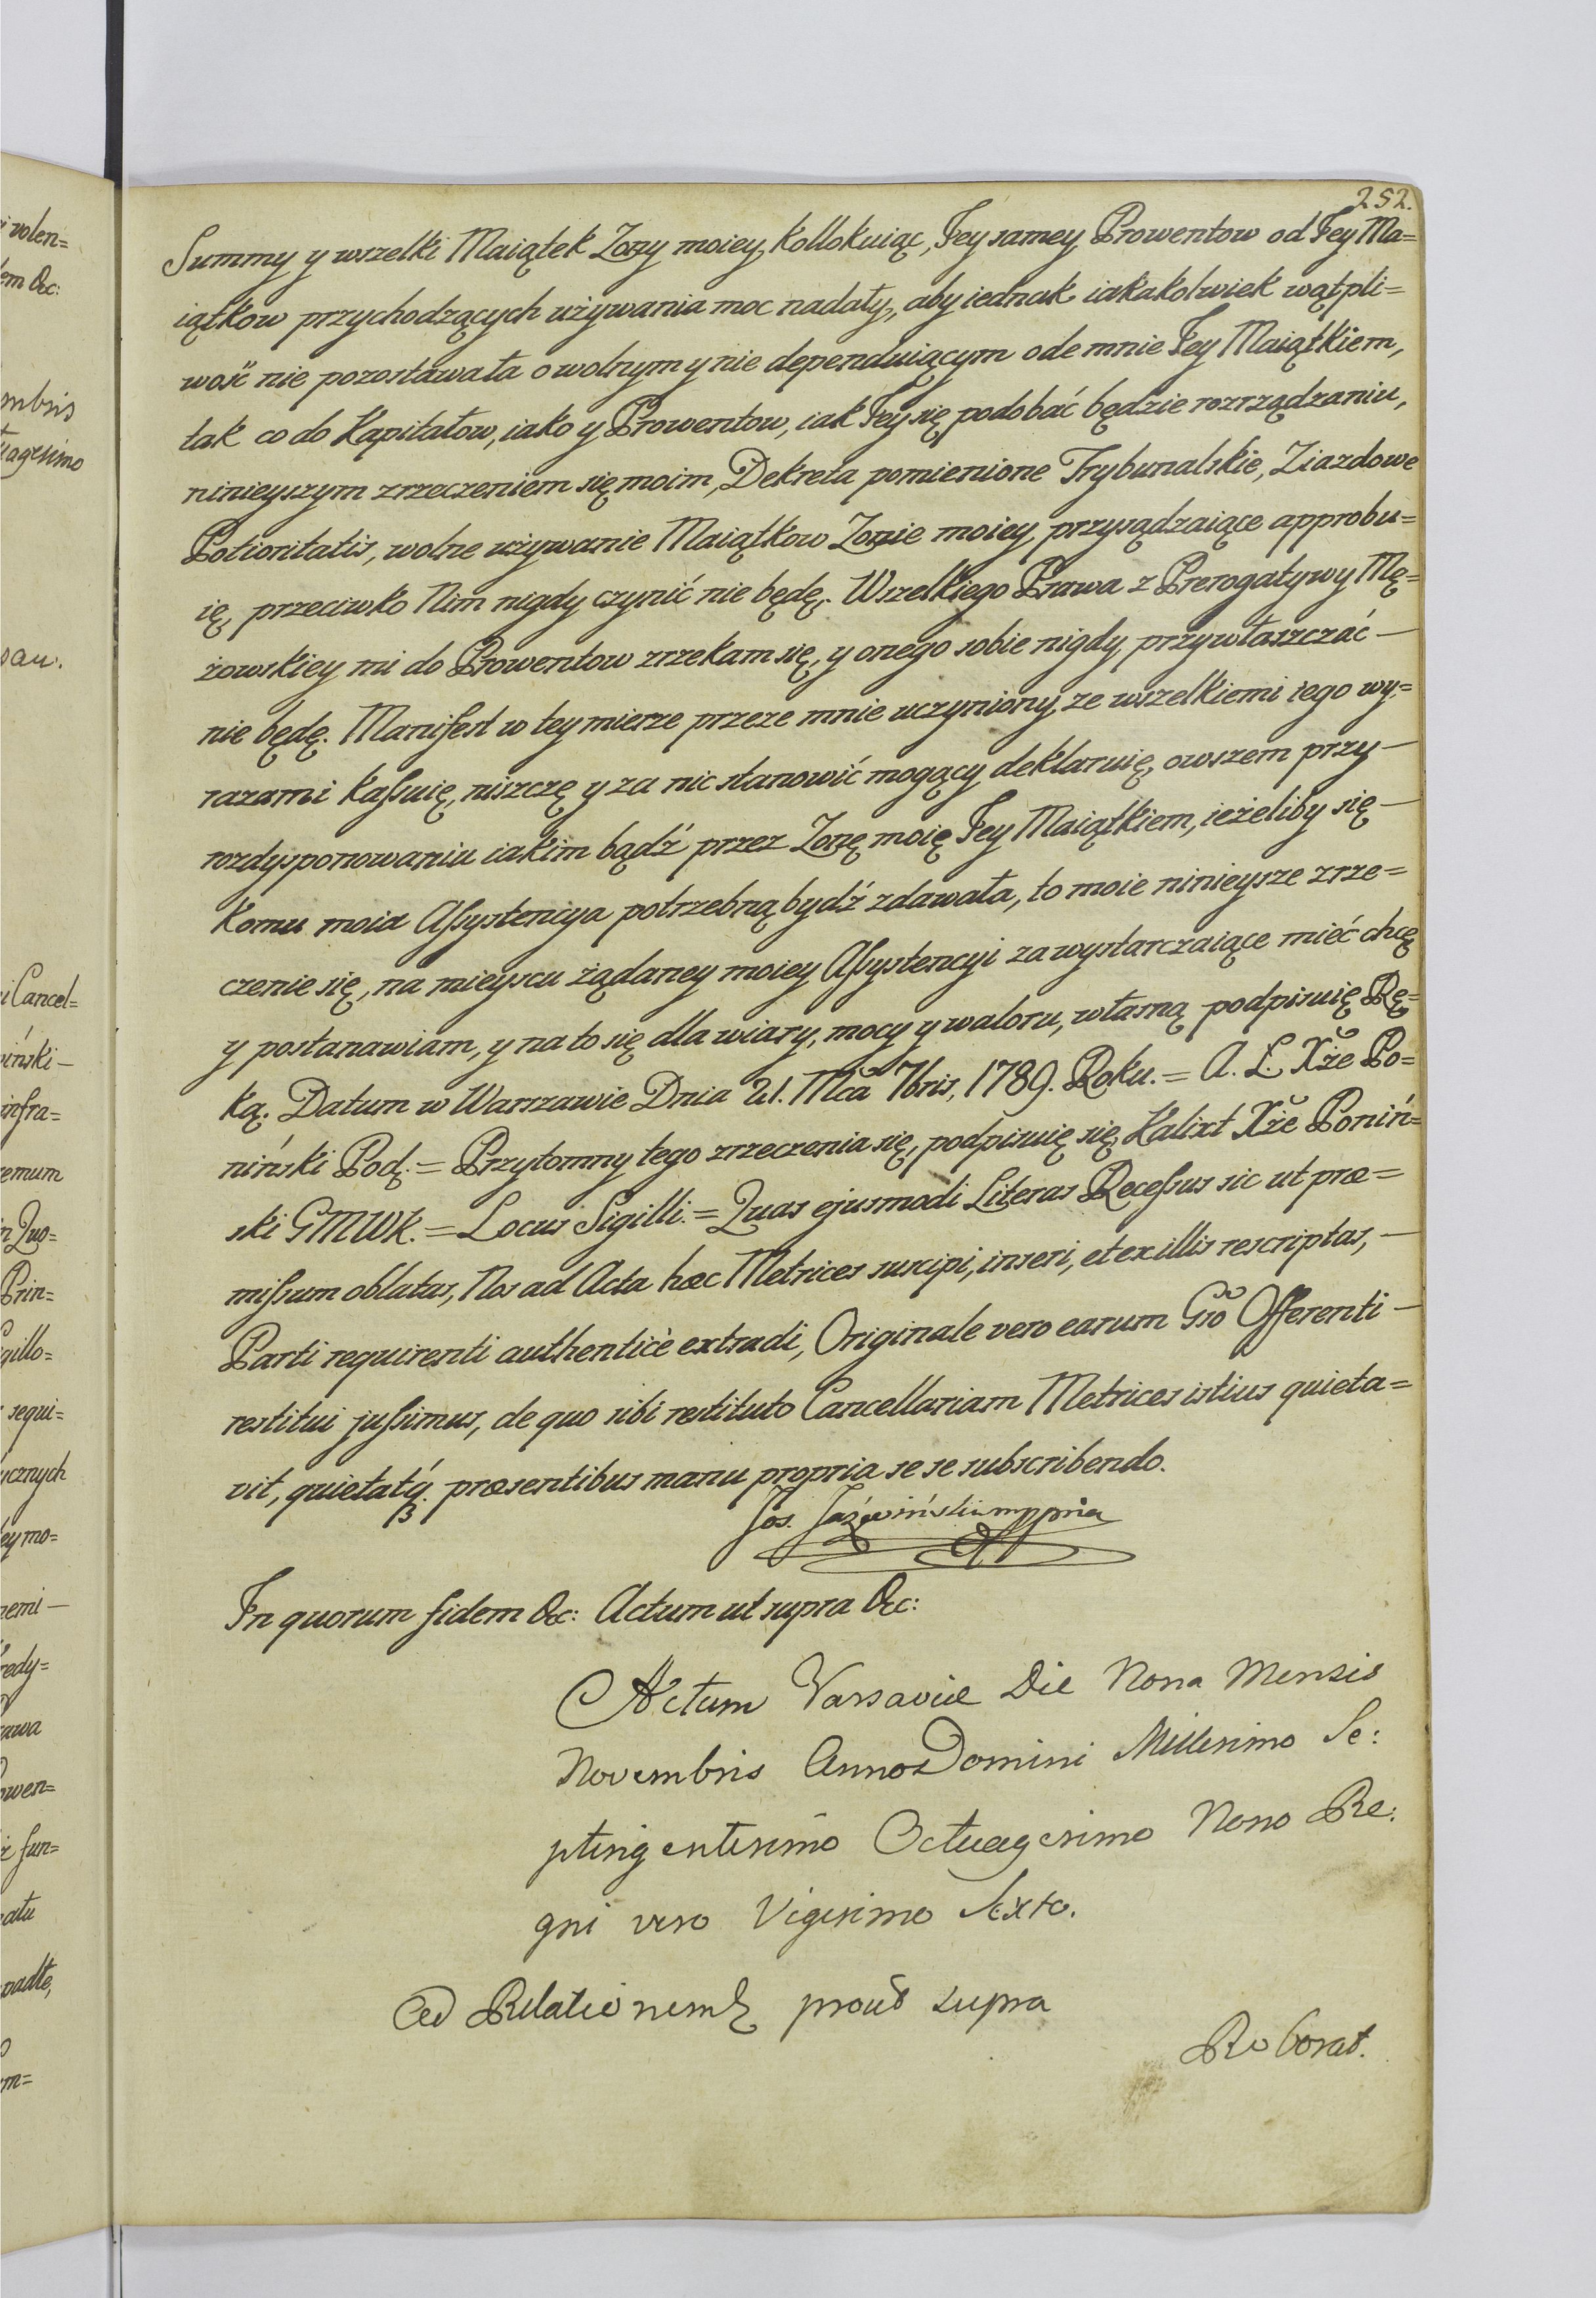 252.
Summy y wszelki Maiątek Zony moiey kollokuiąc, Iey samey Prowentow od Iey Ma=
iątkow przychodzących używania moc nadały, aby iednak iakakolwiek wątpli=
wość nie pozostawała o wolnym y nie dependuiącym odemnie Iey Maiątkiem,
tak co do Kapitałow, iako y Prowentow, iak Iey się podobać będzie rozrządzaniu,
ninieyszym zrzeczeniem się moim, Dekreta pomienione Trybunalskie, Ziazdowe
Potioritatis, wolne używanie Maiątkow Zonie moiey przysądzaiące approbu=
ię, przeciwko Nim nigdy czynić nie będę. Wszelkiego Prawa z Prerogatywy Mę=
żowskiey mi do Prowentow zrzekam się, y onego sobie nigdy przywłaszczać —
nie będę. Manifest w tey mierze przeze mnie uczyniony ze wszelkiemi iego wy=
razami kassuię, niszczę y za nic stanowić mogący deklaruię, owszem przy —
rozdysponowaniu iakim bądź przez Zonę moię Iey Maiątkiem, ieżeliby się —
komu moia Assystencya potrzebną bydź zdawała, to moie ninieysze zrze=
czenie się, na mieyscu żądaney moiey Assystencyi za wystarczaiące mieć chcę
y postanawiam, y na to się dla wiary, mocy y waloru, własną podpisuię Rę=
ką. Datum w Warszawie Dnia 21. Mca 7bris, 1789. Roku. = A. Ł. Xże Po=
niński Pod. = Przytomny tego zrzeczenia się, podpisuię się Kalixt Xże Poniń=
ski GMWK. = Locus Sigilli. = Quas ejusmodi Literas Recessus sic ut præ=
missum oblatas, Nos ad Acta hæc Metrices suscipi, inseri, et ex illis rescriptas, —
Parti requirenti authenticè extradi, Originale vero earum Gro Offerenti —
restitui jussimus, de quo sibi restituto Cancellariam Metrices istius quieta=
vit, quietatq. præsentibus manu propria se se subscribendo.
Jos. Jaźwiński mppria
In quorum fidem &c: Actum ut supra &c:
Actum Varsaviæ Die Nona Mensis
Novembris Anno Domini Millesimo Se:
ptingentesimo Octuagesimo Nono Re:
gni vero Vigesimo Sexto.
Ad Relationem prout supra
Roborat.